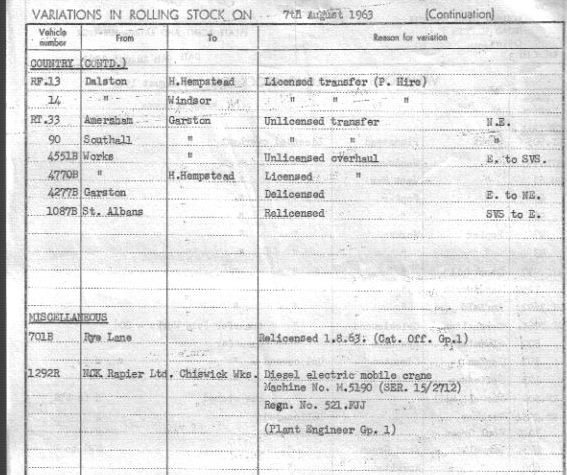 VARIATIONS IN ROLLING STOCK ON 7th August 1963 (Continuation)
Vehicle number From To Reason for variation
COUNTRY (CONTD.)
RF.13 Dalston H.Hempstead Licensed transfer (P. Hire)
14 " Windsor " " "
RT.33 Amersham Garston Unlicensed transfer N.E.
90 Southall " " " "
4551B Works " Unlicensed overhaul E. to SVS.
4770B " H.Hempstead Licensed "
4277B Garston Delicensed E. to NE.
1087B St. Albans Relicensed SVS to E.
MISCELLANEOUS
701B Rye Lane Relicensed 1.8.63. (Cat. Off. Gp.1)
1292R NCK Rapier Ltd. Chiswick Wks. Diesel electric mobile crane
Machine No. M.5190 (SER. 15/2712)
Regn. No. 521.FJJ
(Plant Engineer Gp. 1)